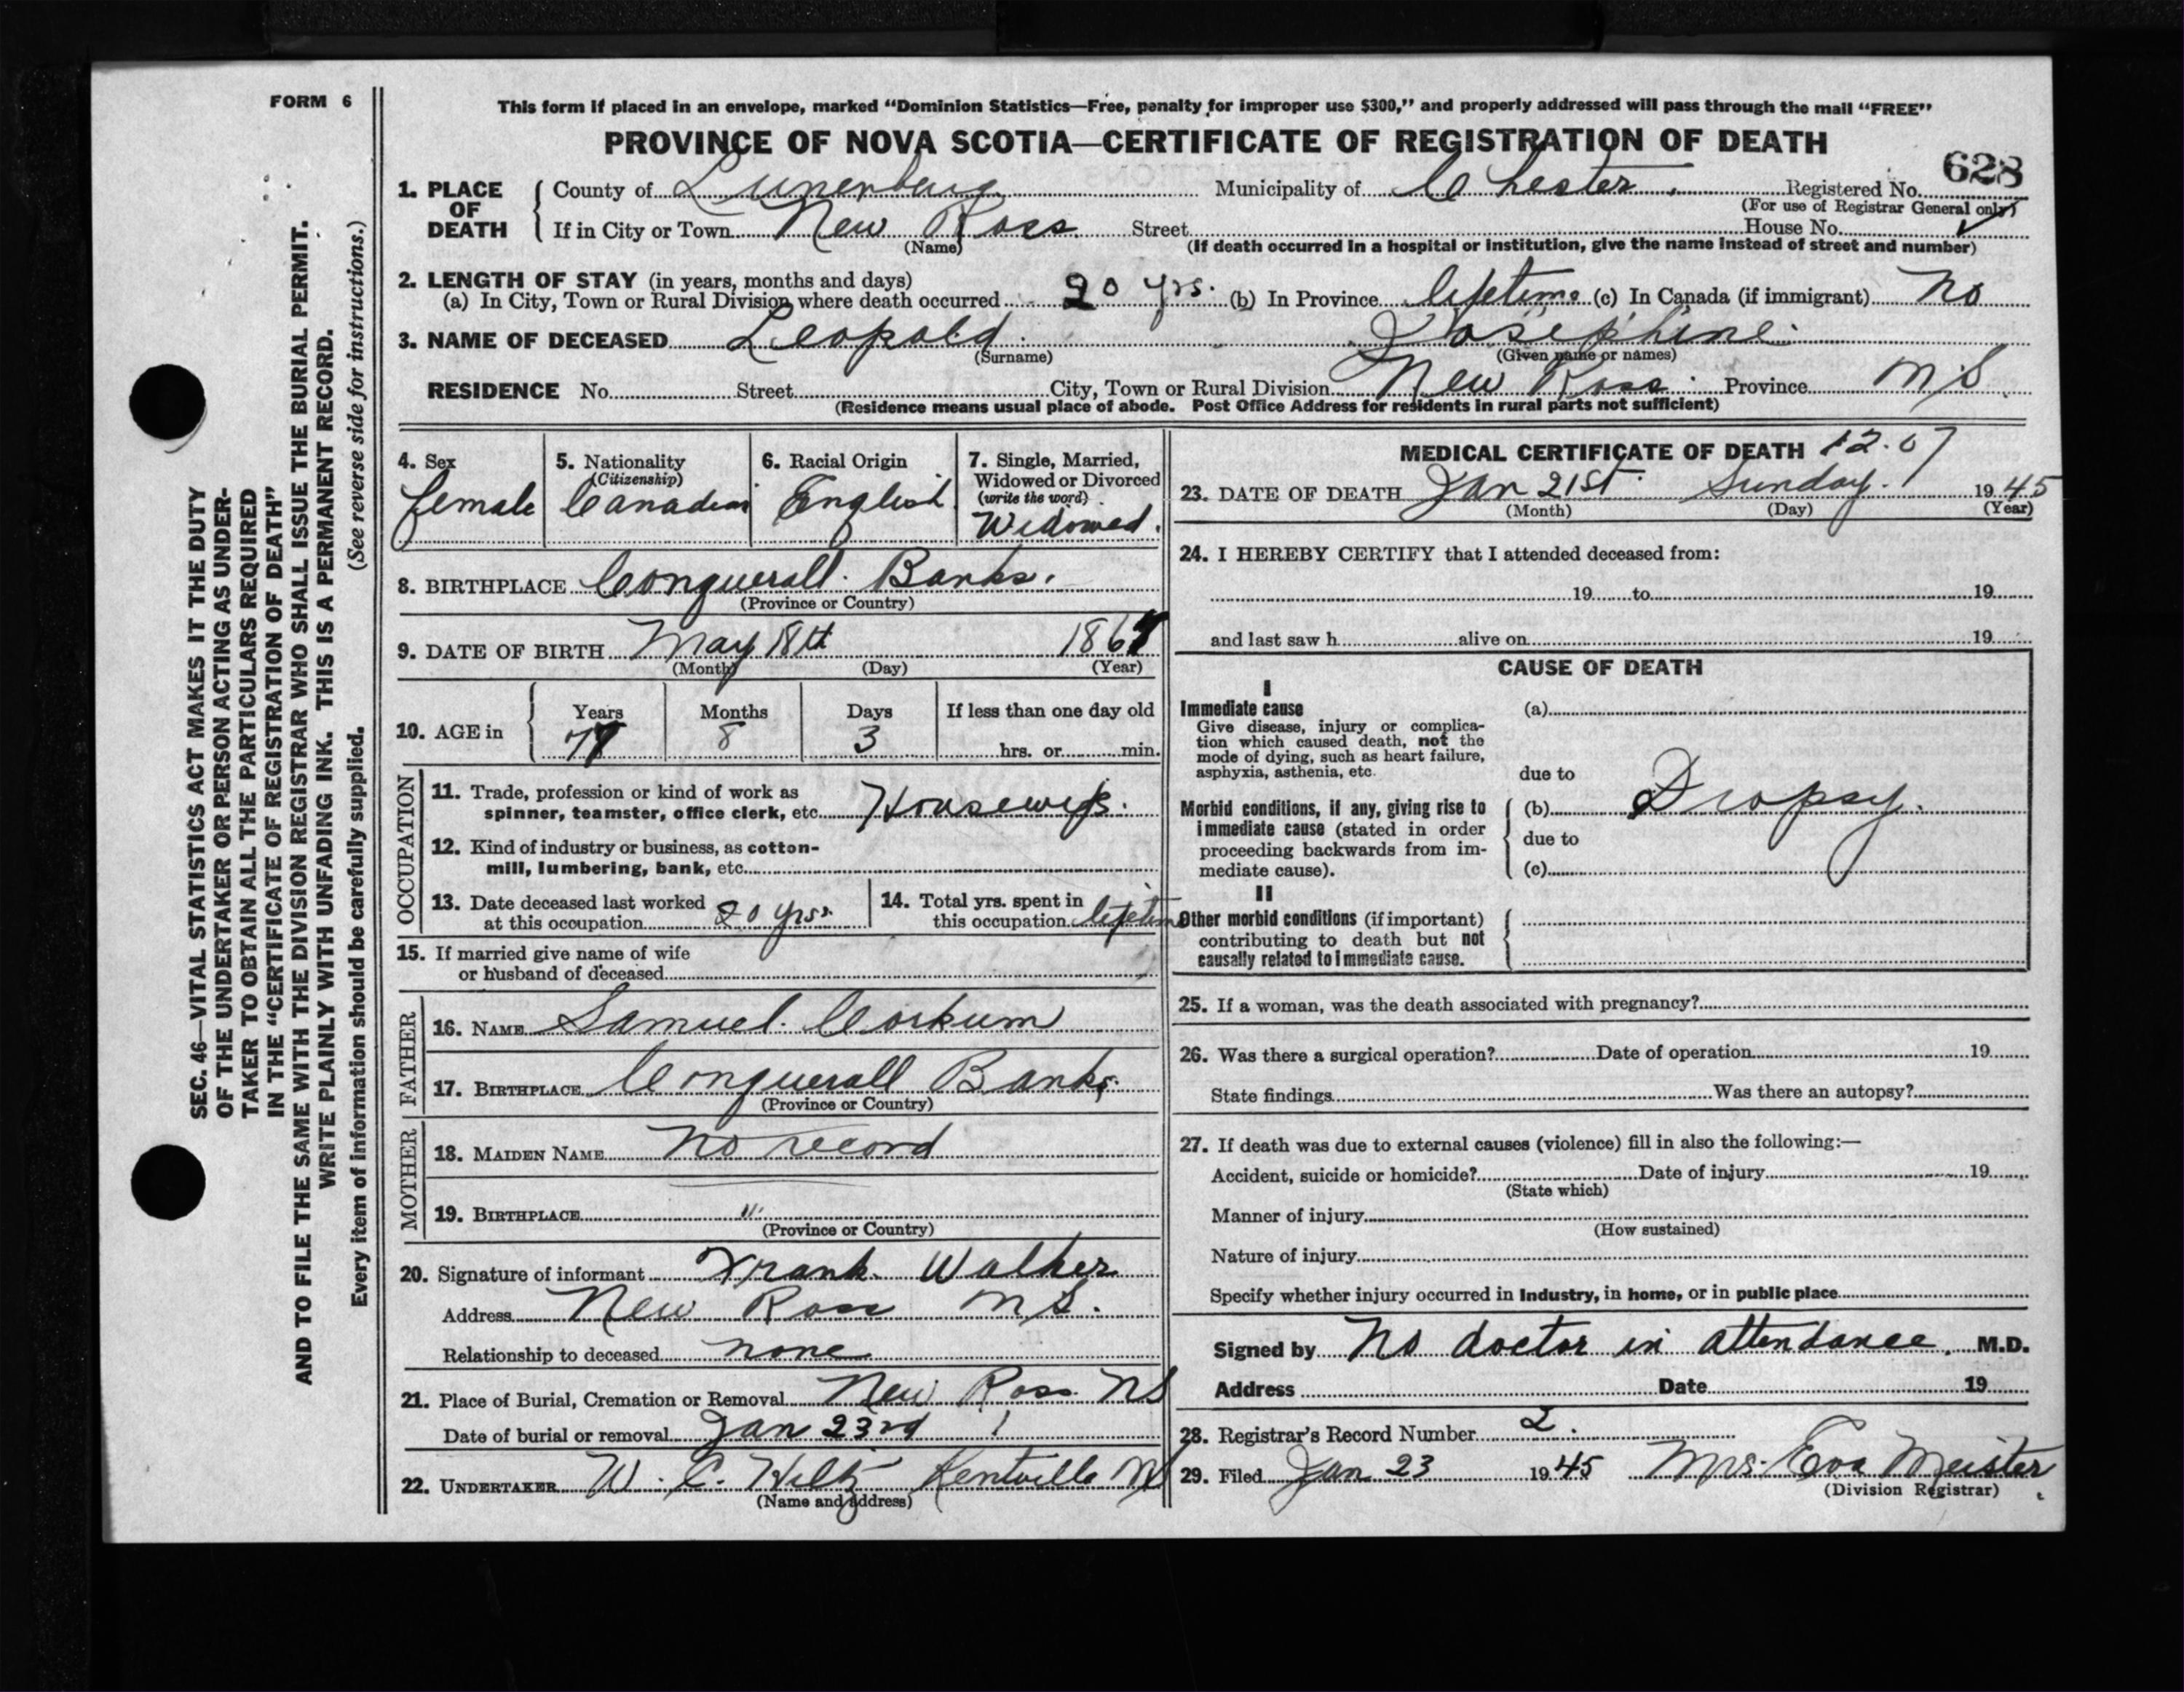 FORM 6
This form if placed in an envelope, marked "Dominion Statistics—Free, penalty for improper use $300," and properly addressed will pass through the mail "FREE"
PROVINCE OF NOVA SCOTIA—CERTIFICATE OF REGISTRATION OF DEATH
628
1. PLACE OF DEATH County of Lunenburg Municipality of Chester Registered No.
(For use of Registrar General only)
If in City or Town New Ross Street House No.
(Name) (If death occurred in a hospital or institution, give the name instead of street and number)
2. LENGTH OF STAY (in years, months and days)
(a) In City, Town or Rural Division where death occurred 20 yrs. (b) In Province lifetime (c) In Canada (if immigrant) no
3. NAME OF DECEASED Leopold Josephine
(Surname) (Given name or names)
RESIDENCE No. Street City, Town or Rural Division New Ross Province N S
(Residence means usual place of abode. Post Office Address for residents in rural parts not sufficient)
4. Sex
female
5. Nationality
(Citizenship)
Canadian
6. Racial Origin
English
7. Single, Married,
Widowed or Divorced
(write the word)
Widowed.
8. BIRTHPLACE Conquerall Banks.
(Province or Country)
9. DATE OF BIRTH May 18th 186
(Month) (Day) (Year)
10. AGE in
Years Months Days If less than one day old
8 3 hrs. or min.
OCCUPATION
11. Trade, profession or kind of work as
spinner, teamster, office clerk, etc. Housewife.
12. Kind of industry or business, as cotton-
mill, lumbering, bank, etc.
13. Date deceased last worked
at this occupation 20 yrs.
14. Total yrs. spent in
this occupation lifetime
15. If married give name of wife
or husband of deceased
FATHER
16. NAME Samuel Corkum
17. BIRTHPLACE Conquerall Banks.
(Province or Country)
MOTHER
18. MAIDEN NAME no record
19. BIRTHPLACE "
(Province or Country)
20. Signature of informant Frank Walker
Address New Ross N S.
Relationship to deceased none
21. Place of Burial, Cremation or Removal New Ross N S
Date of burial or removal Jan 23rd
22. UNDERTAKER W. C. Hiltz Kentville N S
(Name and address)
MEDICAL CERTIFICATE OF DEATH 12.07
23. DATE OF DEATH Jan 21st Sunday. 1945
(Month) (Day) (Year)
24. I HEREBY CERTIFY that I attended deceased from:
19 to 19
and last saw h alive on 19
CAUSE OF DEATH
I
Immediate cause (a)
Give disease, injury or complica-
tion which caused death, not the
mode of dying, such as heart failure,
asphyxia, asthenia, etc.
due to
Morbid conditions, if any, giving rise to (b) Dropsy.
immediate cause (stated in order
proceeding backwards from im-
mediate cause).
due to
(c)
II
Other morbid conditions (if important)
contributing to death but not
causally related to immediate cause.
25. If a woman, was the death associated with pregnancy?
26. Was there a surgical operation? Date of operation 19
State findings Was there an autopsy?
27. If death was due to external causes (violence) fill in also the following:—
Accident, suicide or homicide? Date of injury 19
(State which)
Manner of injury
(How sustained)
Nature of injury
Specify whether injury occurred in Industry, in home, or in public place
Signed by No doctor in attendance. M.D.
Address Date 19
28. Registrar's Record Number 2.
29. Filed Jan 23 1945 Mrs. Eva Meister
(Division Registrar)
SEC. 46—VITAL STATISTICS ACT MAKES IT THE DUTY
OF THE UNDERTAKER OR PERSON ACTING AS UNDER-
TAKER TO OBTAIN ALL THE PARTICULARS REQUIRED
IN THE "CERTIFICATE OF REGISTRATION OF DEATH"
AND TO FILE THE SAME WITH THE DIVISION REGISTRAR WHO SHALL ISSUE THE BURIAL PERMIT.
WRITE PLAINLY WITH UNFADING INK. THIS IS A PERMANENT RECORD.
Every item of information should be carefully supplied. (See reverse side for instructions.)